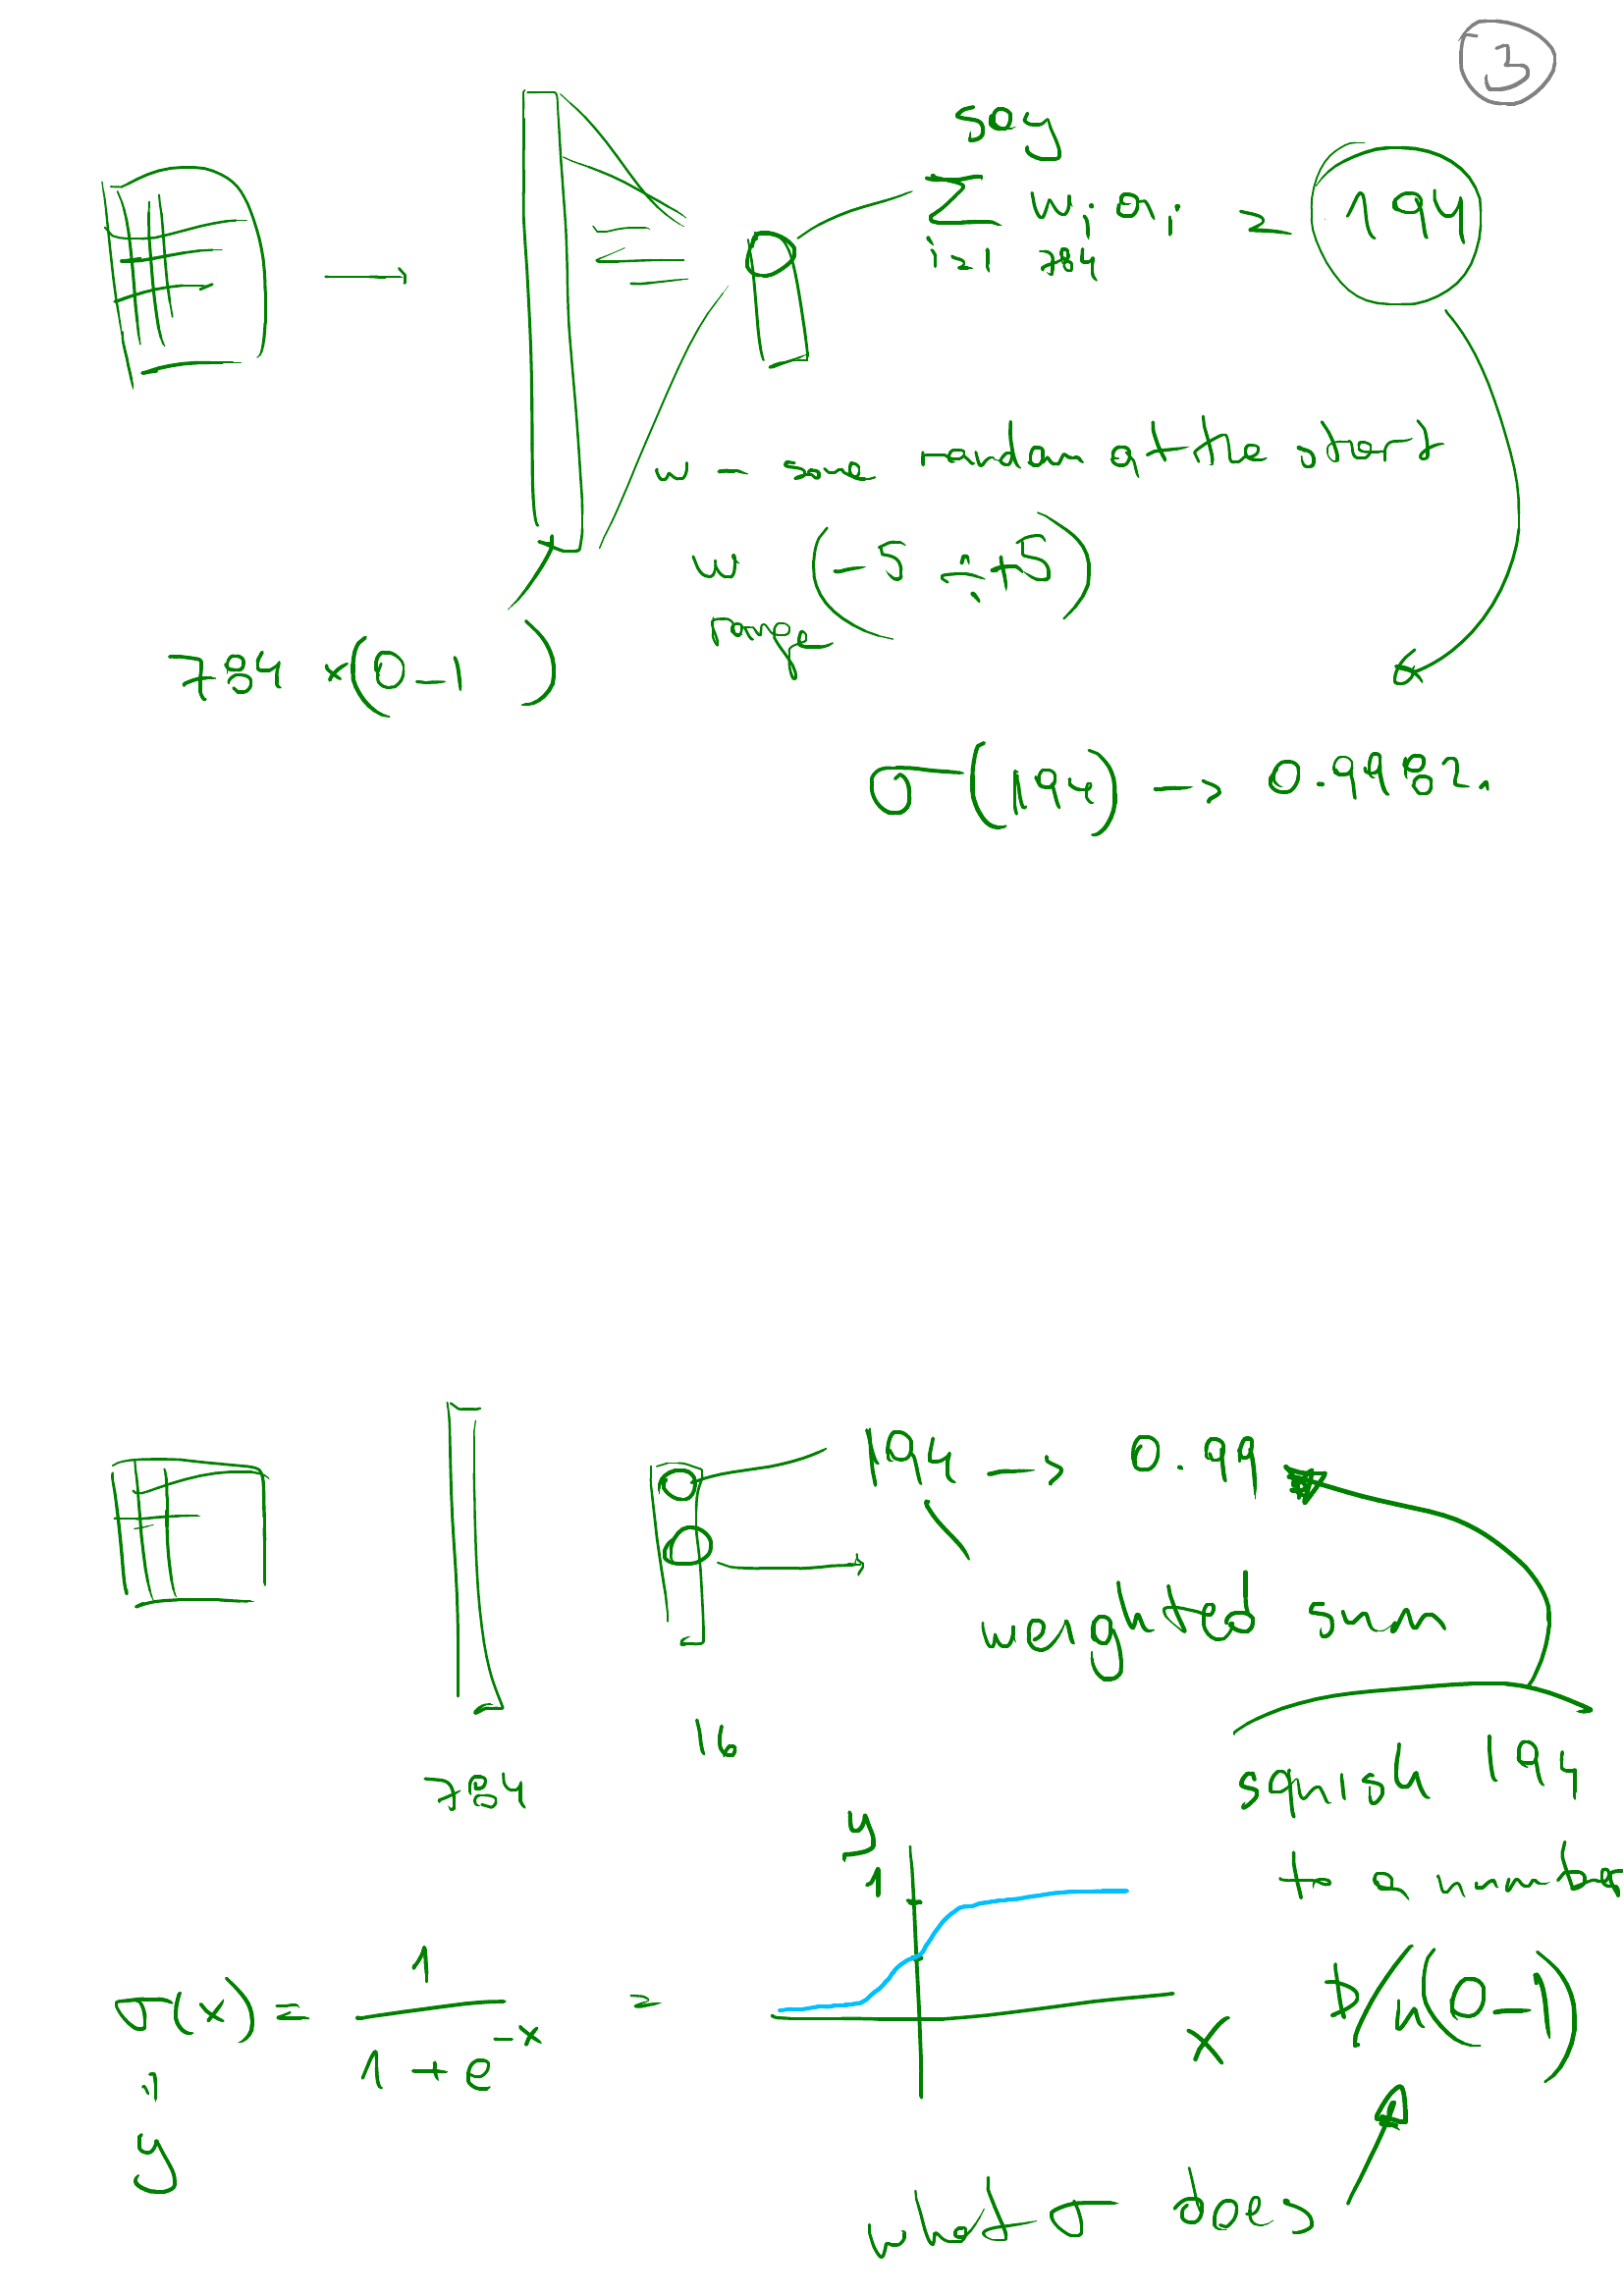 3
say
∑ i=1 784 wᵢ aᵢ = 194
w - some random at the start
w (-5 ÷ +5)
range
784 x (0-1)
σ(194) -> 0.9982.
194 -> 0.99
weighted sum
16
784
squish 194
to a number
in (0-1)
y
1
σ(x) = 1 / 1 + e^-x =
x
"
y
what σ does